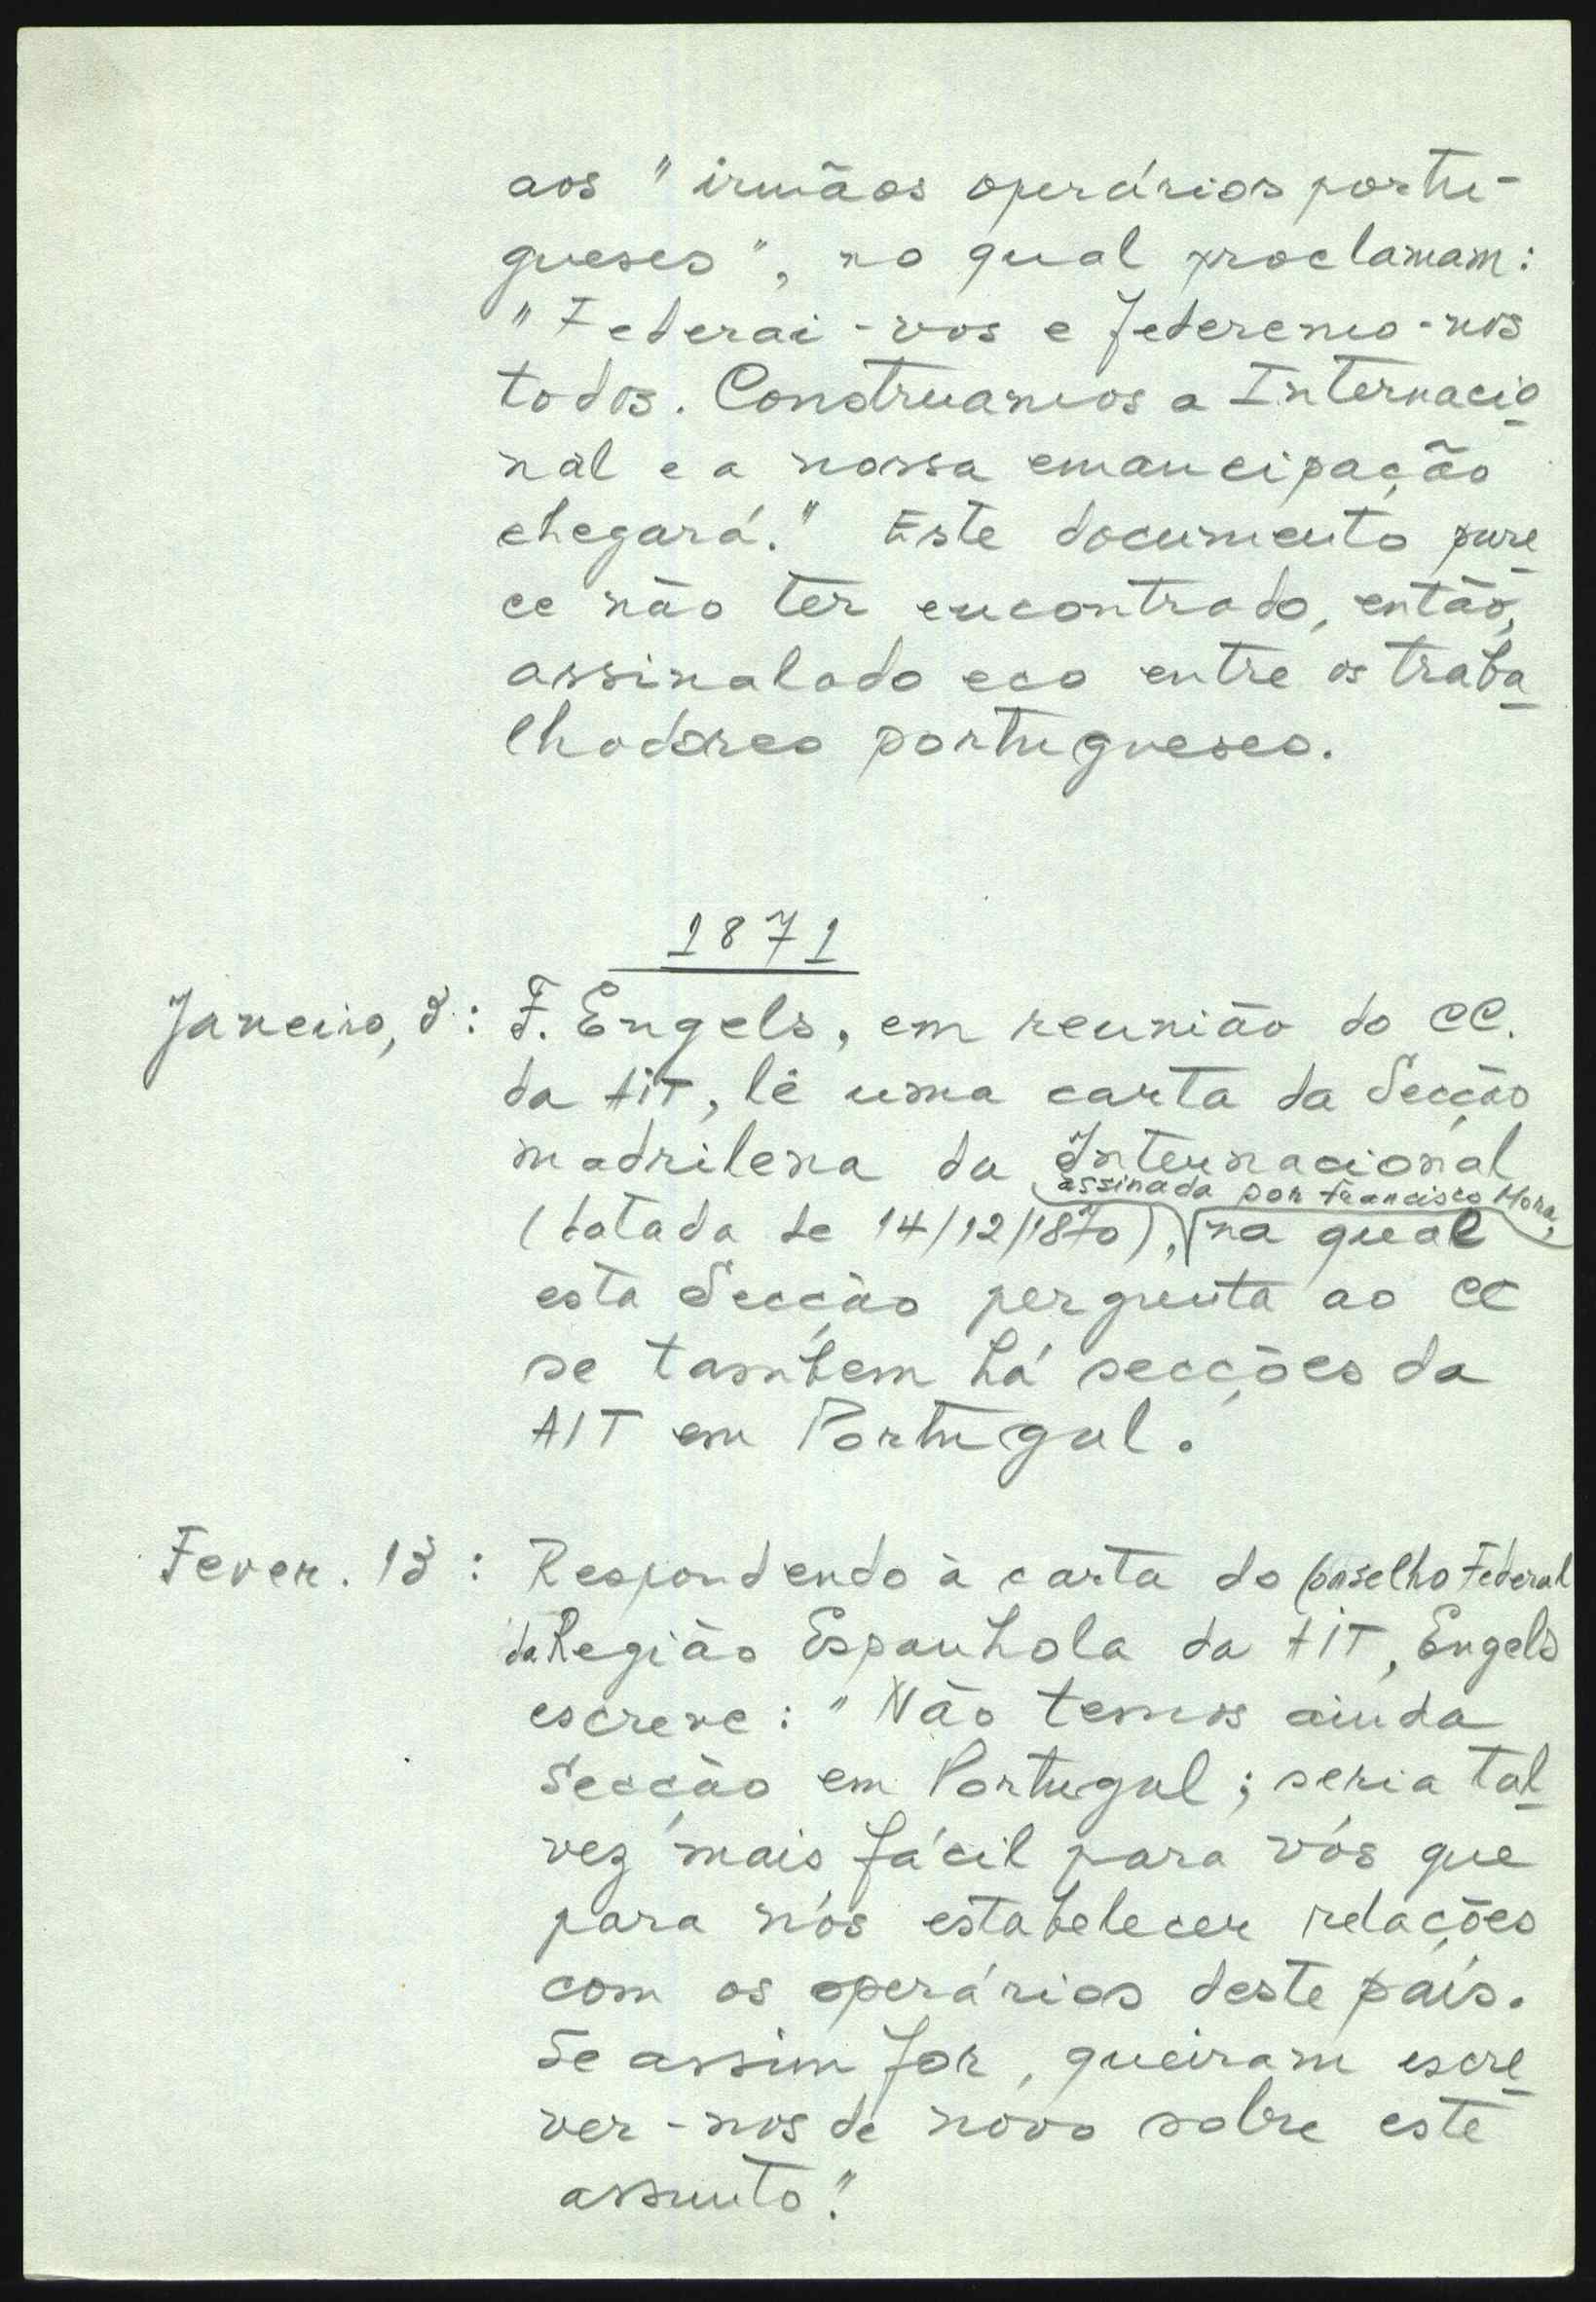 aos "irmãos operários portu-
gueses", no qual proclamam:
"Federai-vos e federemo-nos
todos. Construamos a Internacio
nal e a nossa emancipação
chegará." Este documento pare
ce não ter encontrado, então,
assinalado eco entre os traba
lhadores portugueses.
1871
Janeiro, 3: F. Engels, em reunião do CC.
da AIT, lê uma carta da Secção
madrilena da Internacional
assinada por Francisco Mora,
(datada de 14/12/1870), na qual
esta Secção pergunta ao CC
se também há secções da
AIT em Portugal.
Fever. 13: Respondendo à carta do Conselho Federal
da Região Espanhola da AIT, Engels
escreve: "Não temos ainda
Secção em Portugal; seria tal
vez mais fácil para vós que
para nós estabelecer relações
com os operários deste país.
Se assim for, queiram escre
ver-nos de novo sobre este
assunto."